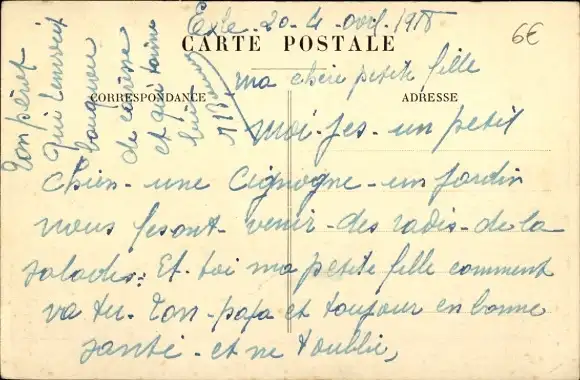 20-4 avril-1918
6€
CARTE POSTALE
CORRESPONDANCE
ADRESSE
ma chère petite fille
Moi-jes-un petit
chien-une Cignogne-un jardin
nous fesont-venir-des radis-de la
salades: Et-toi ma petite fille comment
va tu-Ton-papa et toujour en bonne
santé-et ne t'oublie,
Ton père
qui t'envoit
de caresse
et qui t'aime
bien